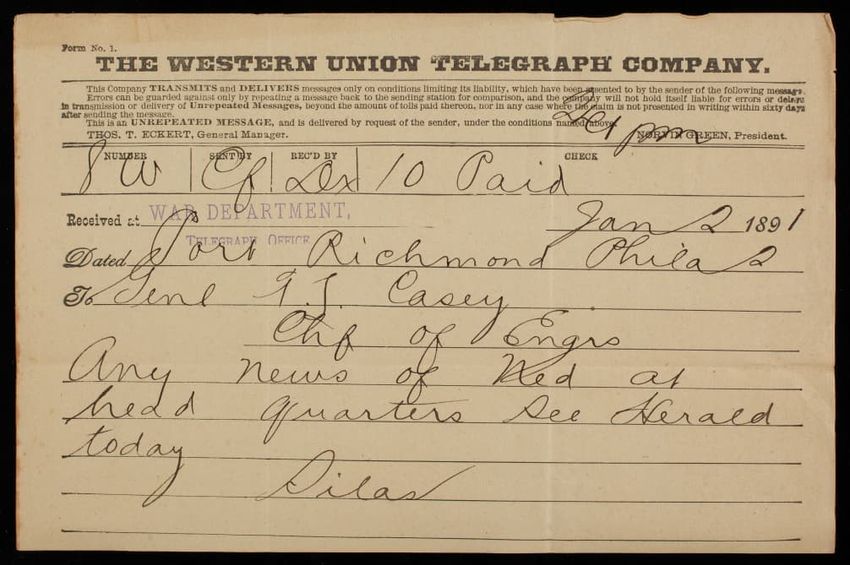 Form No. 1.
THE WESTERN UNION TELEGRAPH COMPANY.
This Company TRANSMITS and DELIVERS messages only on conditions limiting its liability, which have been assented to by the sender of the following message.
Errors can be guarded against only by repeating a message back to the sending station for comparison, and the company will not hold itself liable for errors or delays
in transmission or delivery of Unrepeated Messages, beyond the amount of tolls paid thereon, nor in any case where the claim is not presented in writing within sixty days
after sending the message.
This is an UNREPEATED MESSAGE, and is delivered by request of the sender, under the conditions named above.
pm
THOS. T. ECKERT, General Manager. NORVIN GREEN, President.
NUMBER SENT BY REC'D BY CHECK
8 W Cf Dx 10 Paid
Received at WAR DEPARTMENT, Jan 2 1891
TELEGRAPH OFFICE
Dated Port Richmond Phila 2
To Genl T. L. Casey
Chf of Engrs
Any news of Ned at
head quarters See Herald
today
Silas